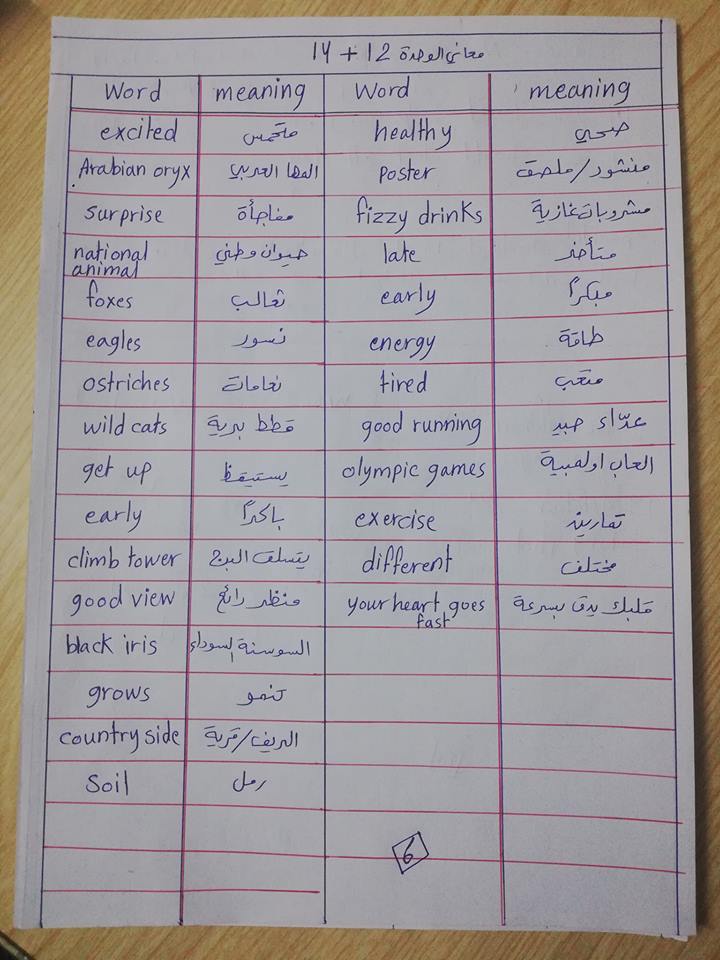 معاني الوحدة 12 + 14
Word meaning Word meaning
excited متحمس healthy صحي
Arabian oryx المها العربي poster منشور/ملصق
surprise مفاجأة fizzy drinks مشروبات غازية
national animal حيوان وطني late متأخر
foxes ثعالب early مبكراً
eagles نسور energy طاقة
ostriches نعامات tired متعب
wild cats قطط برية good running عدّاء جيد
get up يستيقظ olympic games العاب اولمبية
early باكراً exercise تمارين
climb tower يتسلق البرج different مختلف
good view منظر رائع your heart goes fast قلبك يدق بسرعة
black iris السوسنة السوداء
grows تنمو
country side الريف/قرية
Soil رمل
6